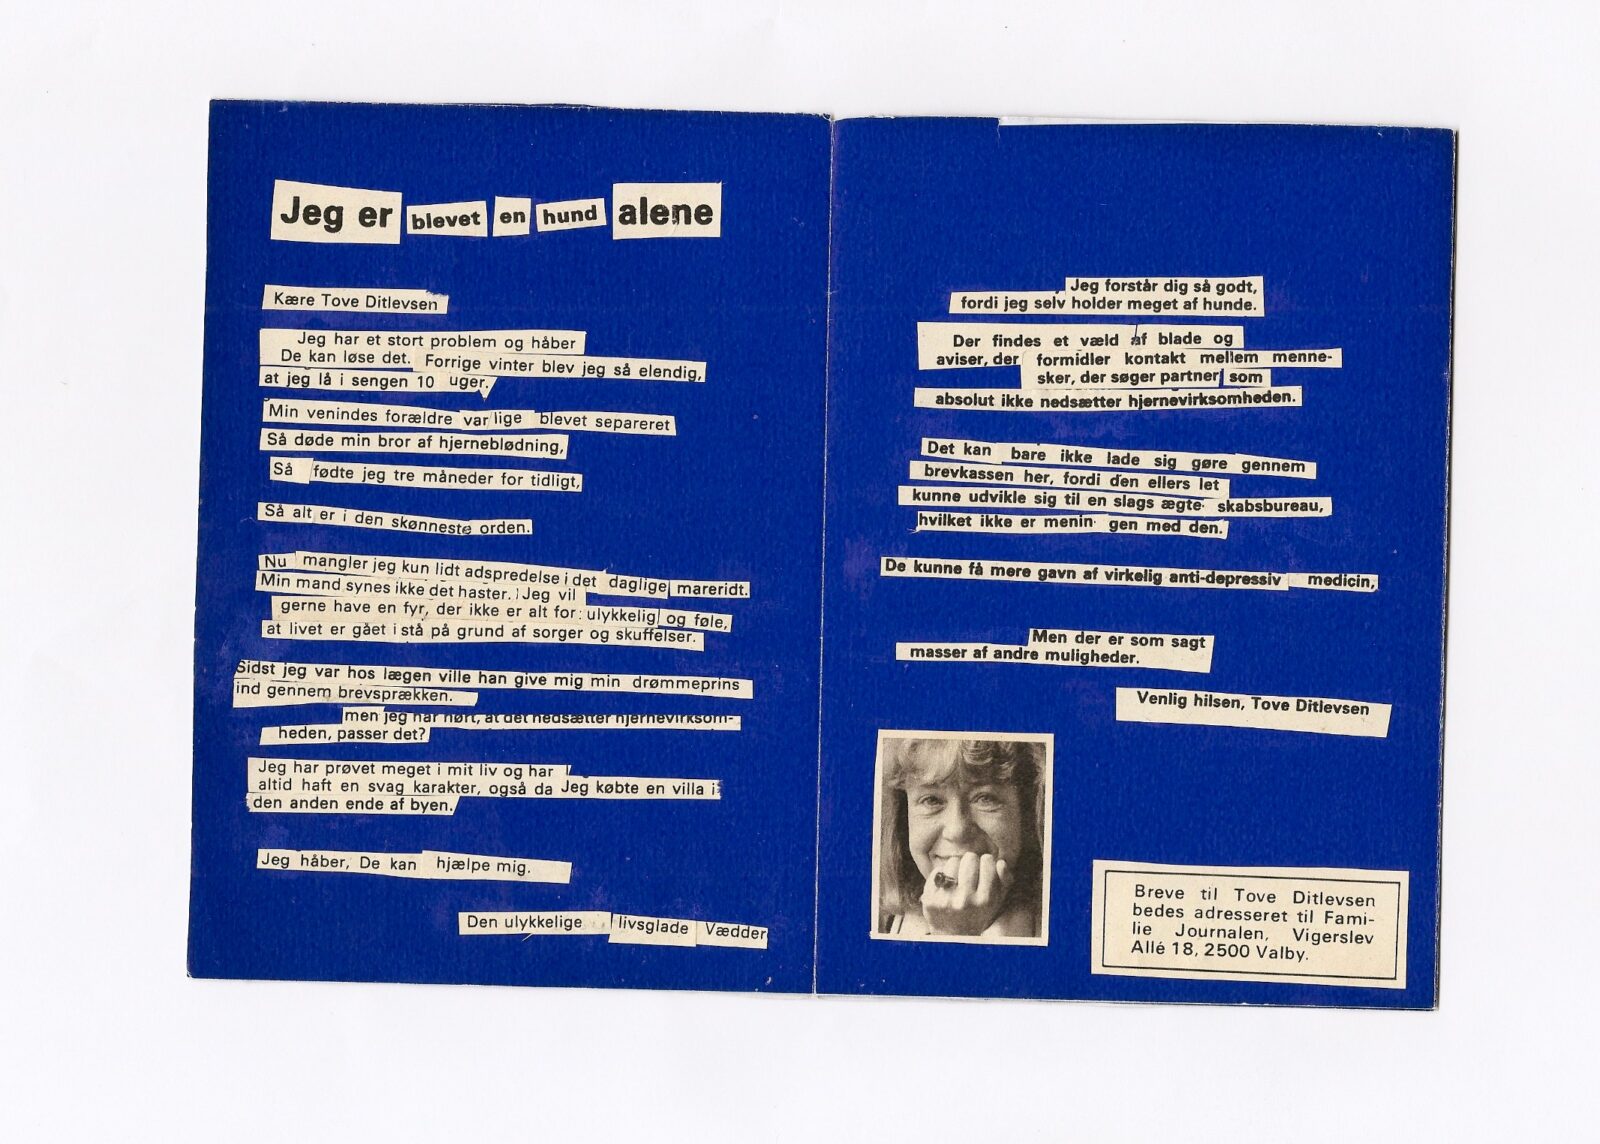 Jeg er blevet en hund alene
Kære Tove Ditlevsen
Jeg har et stort problem og håber
De kan løse det. Forrige vinter blev jeg så elendig,
at jeg lå i sengen 10 uger.
Min venindes forældre var lige blevet separeret
Så døde min bror af hjerneblødning,
Så fødte jeg tre måneder for tidligt,
Så alt er i den skønneste orden.
Nu mangler jeg kun lidt adspredelse i det daglige mareridt.
Min mand synes ikke det haster. Jeg vil
gerne have en fyr, der ikke er alt for ulykkelig og føle,
at livet er gået i stå på grund af sorger og skuffelser.
Sidst jeg var hos lægen ville han give mig min drømmeprins
ind gennem brevsprækken.
men jeg har hørt, at det nedsætter hjernevirksom-
heden, passer det?
Jeg har prøvet meget i mit liv og har
altid haft en svag karakter, også da Jeg købte en villa i
den anden ende af byen.
Jeg håber, De kan hjælpe mig.
Den ulykkelige livsglade Vædder
Jeg forstår dig så godt,
fordi jeg selv holder meget af hunde.
Der findes et væld af blade og
aviser, der formidler kontakt mellem menne-
sker, der søger partner som
absolut ikke nedsætter hjernevirksomheden.
Det kan bare ikke lade sig gøre gennem
brevkassen her, fordi den ellers let
kunne udvikle sig til en slags ægte skabsbureau,
hvilket ikke er menin gen med den.
De kunne få mere gavn af virkelig anti-depressiv medicin,
Men der er som sagt
masser af andre muligheder.
Venlig hilsen, Tove Ditlevsen
Breve til Tove Ditlevsen
bedes adresseret til Fami-
lie Journalen, Vigerslev
Allé 18, 2500 Valby.